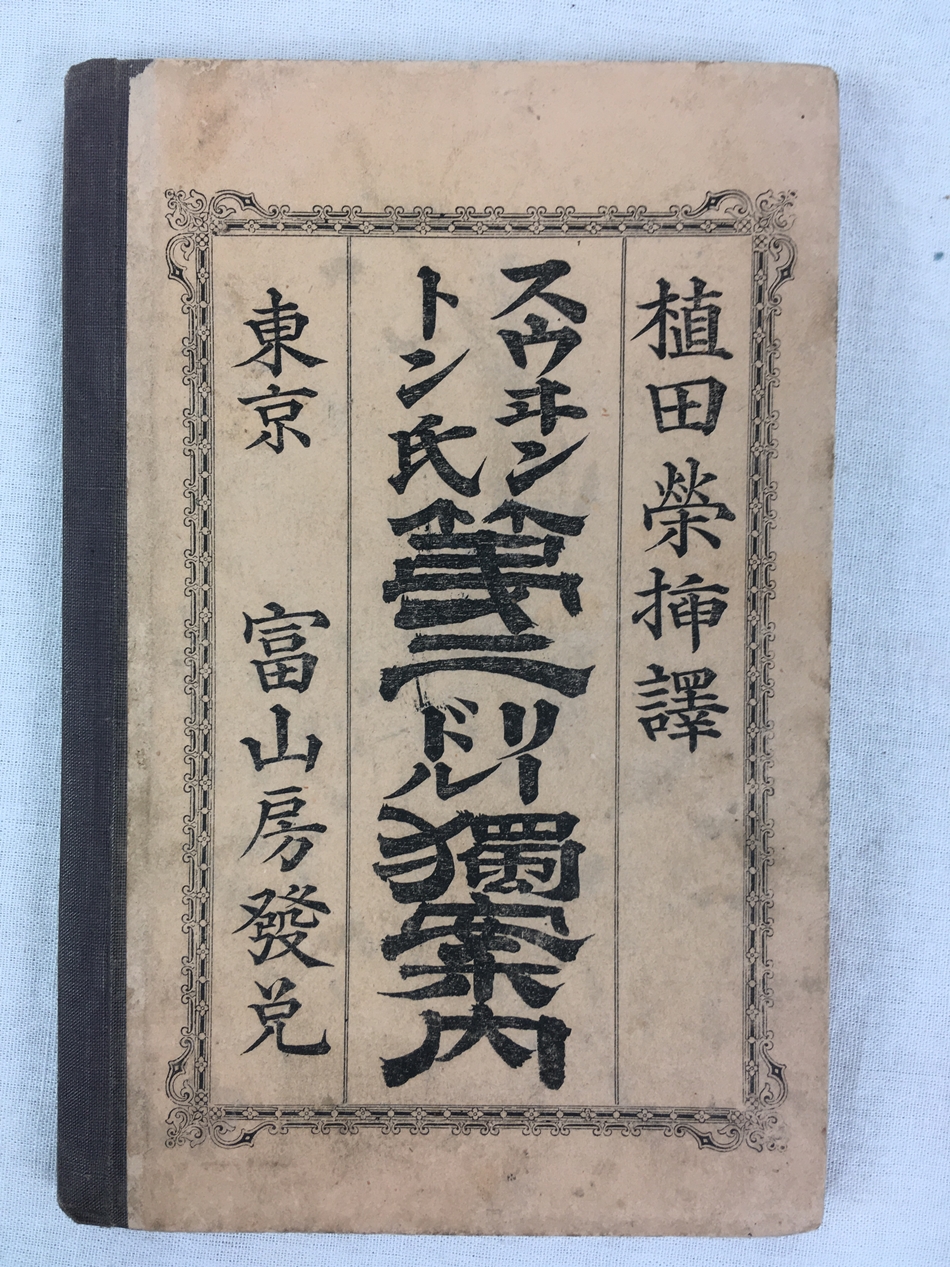 植田榮挿譯
スウヰントン氏第二リードル獨案內
東京 富山房發兌